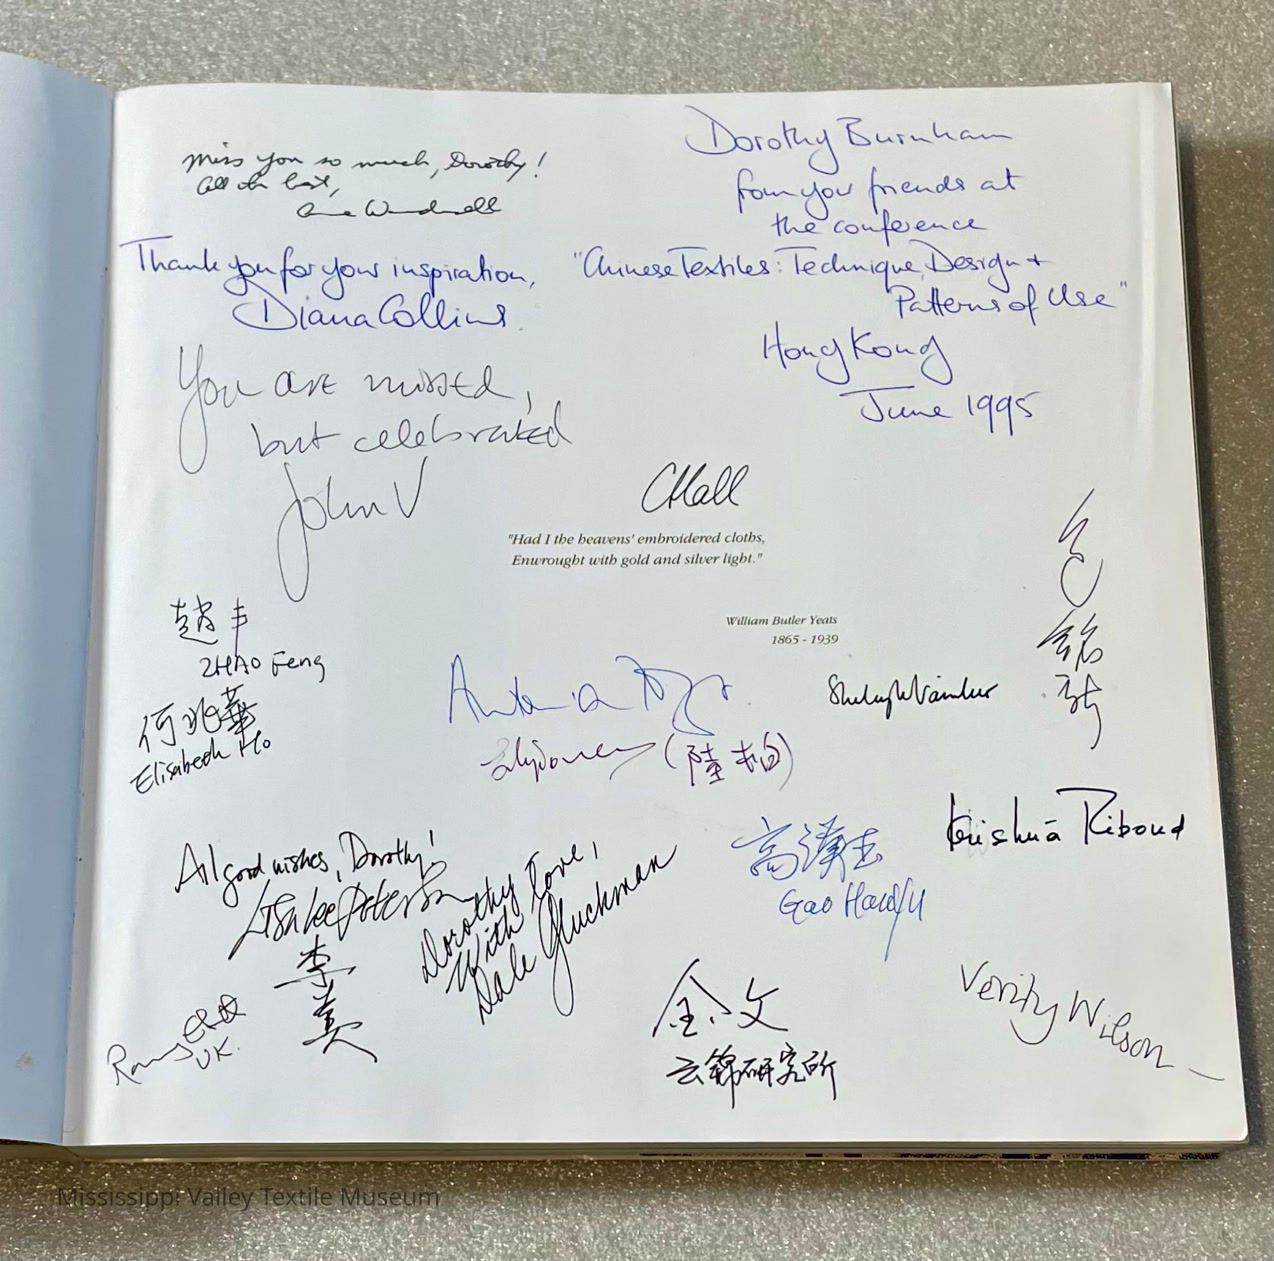 Miss you so much, Dorothy!
All the best,
Dorothy Burnham
from your friends at
the conference
"Chinese Textiles: Technique, Design +
Patterns of Use"
Hong Kong
June 1995
Thank you for your inspiration,
Diana Collins.
You are missed,
but celebrated
John V
CHall
"Had I the heavens' embroidered cloths,
Enwrought with gold and silver light."
William Butler Yeats
1865 - 1939
趙丰
ZHAO Feng
何兆華
Elisabeth Ho
(陸柏)
All good wishes, Dorothy!
Lisa Lee Peterson
李美
UK.
Dorothy
With love,
Dale Gluckman
高漢玉
Gao Hanyu
Krishnā Riboud
金文
云錦研究所
Verity Wilson
Mississippi Valley Textile Museum